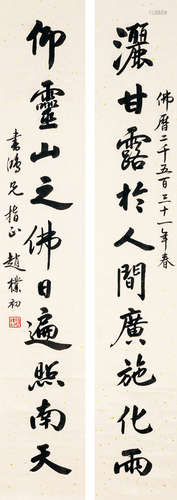 佛曆二千五百三十一年春
灑甘露於人間廣施化雨
仰靈山之佛日遍照南天
书鴻兄指正 趙樸初